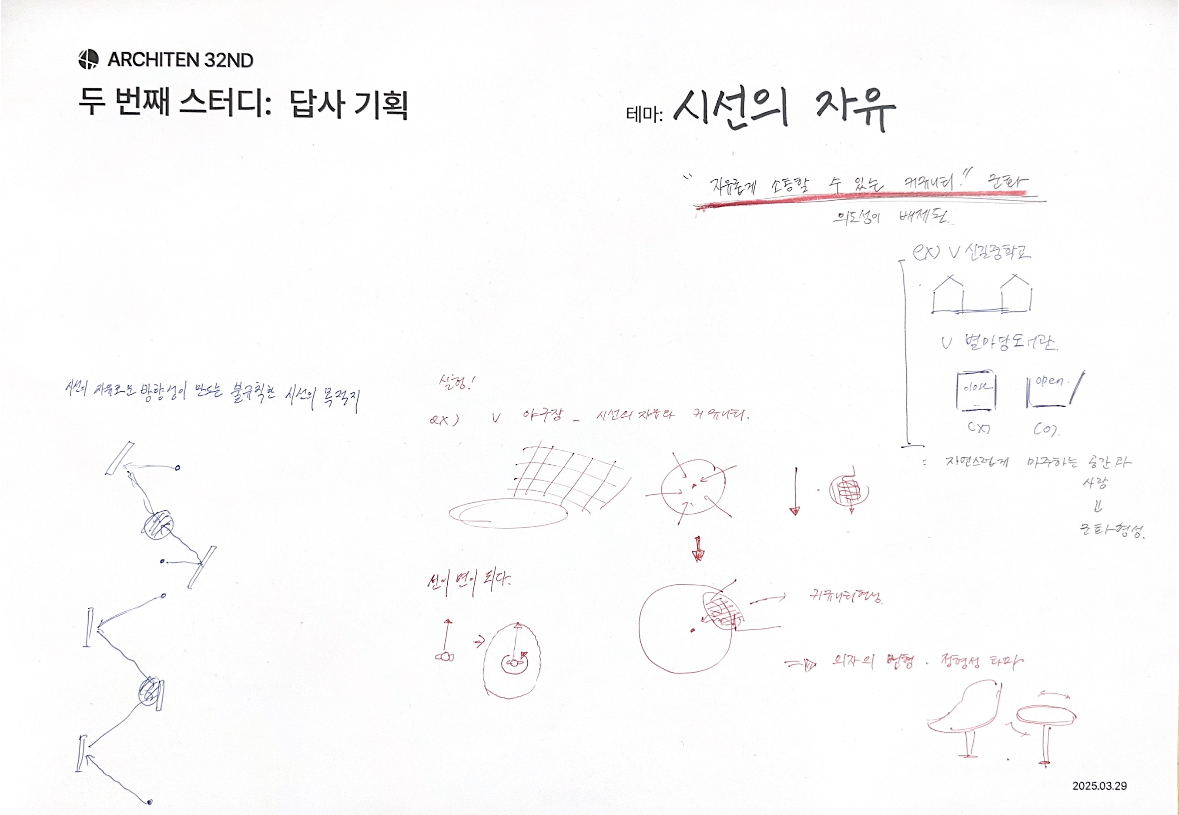 ARCHITEN 32ND
두 번째 스터디: 답사 기획
테마: 시선의 자유
"자유롭게 소통할 수 있는 커뮤니티." 문화
의도성이 배제된.
ex) v 신길중학교
v 별마당도서관.
close open.
(x) (o).
: 자연스럽게 마주하는 공간과
사람
⇓
문화형성.
시선의 자유로운 방향성이 만드는 불규칙한 시선의 목적지
실험!
ex) v 야구장 _ 시선의 자유와 커뮤니티.
선이 면이 되다.
커뮤니티형성.
⇒ 의자의 변형 · 정형성 타파
2025.03.29